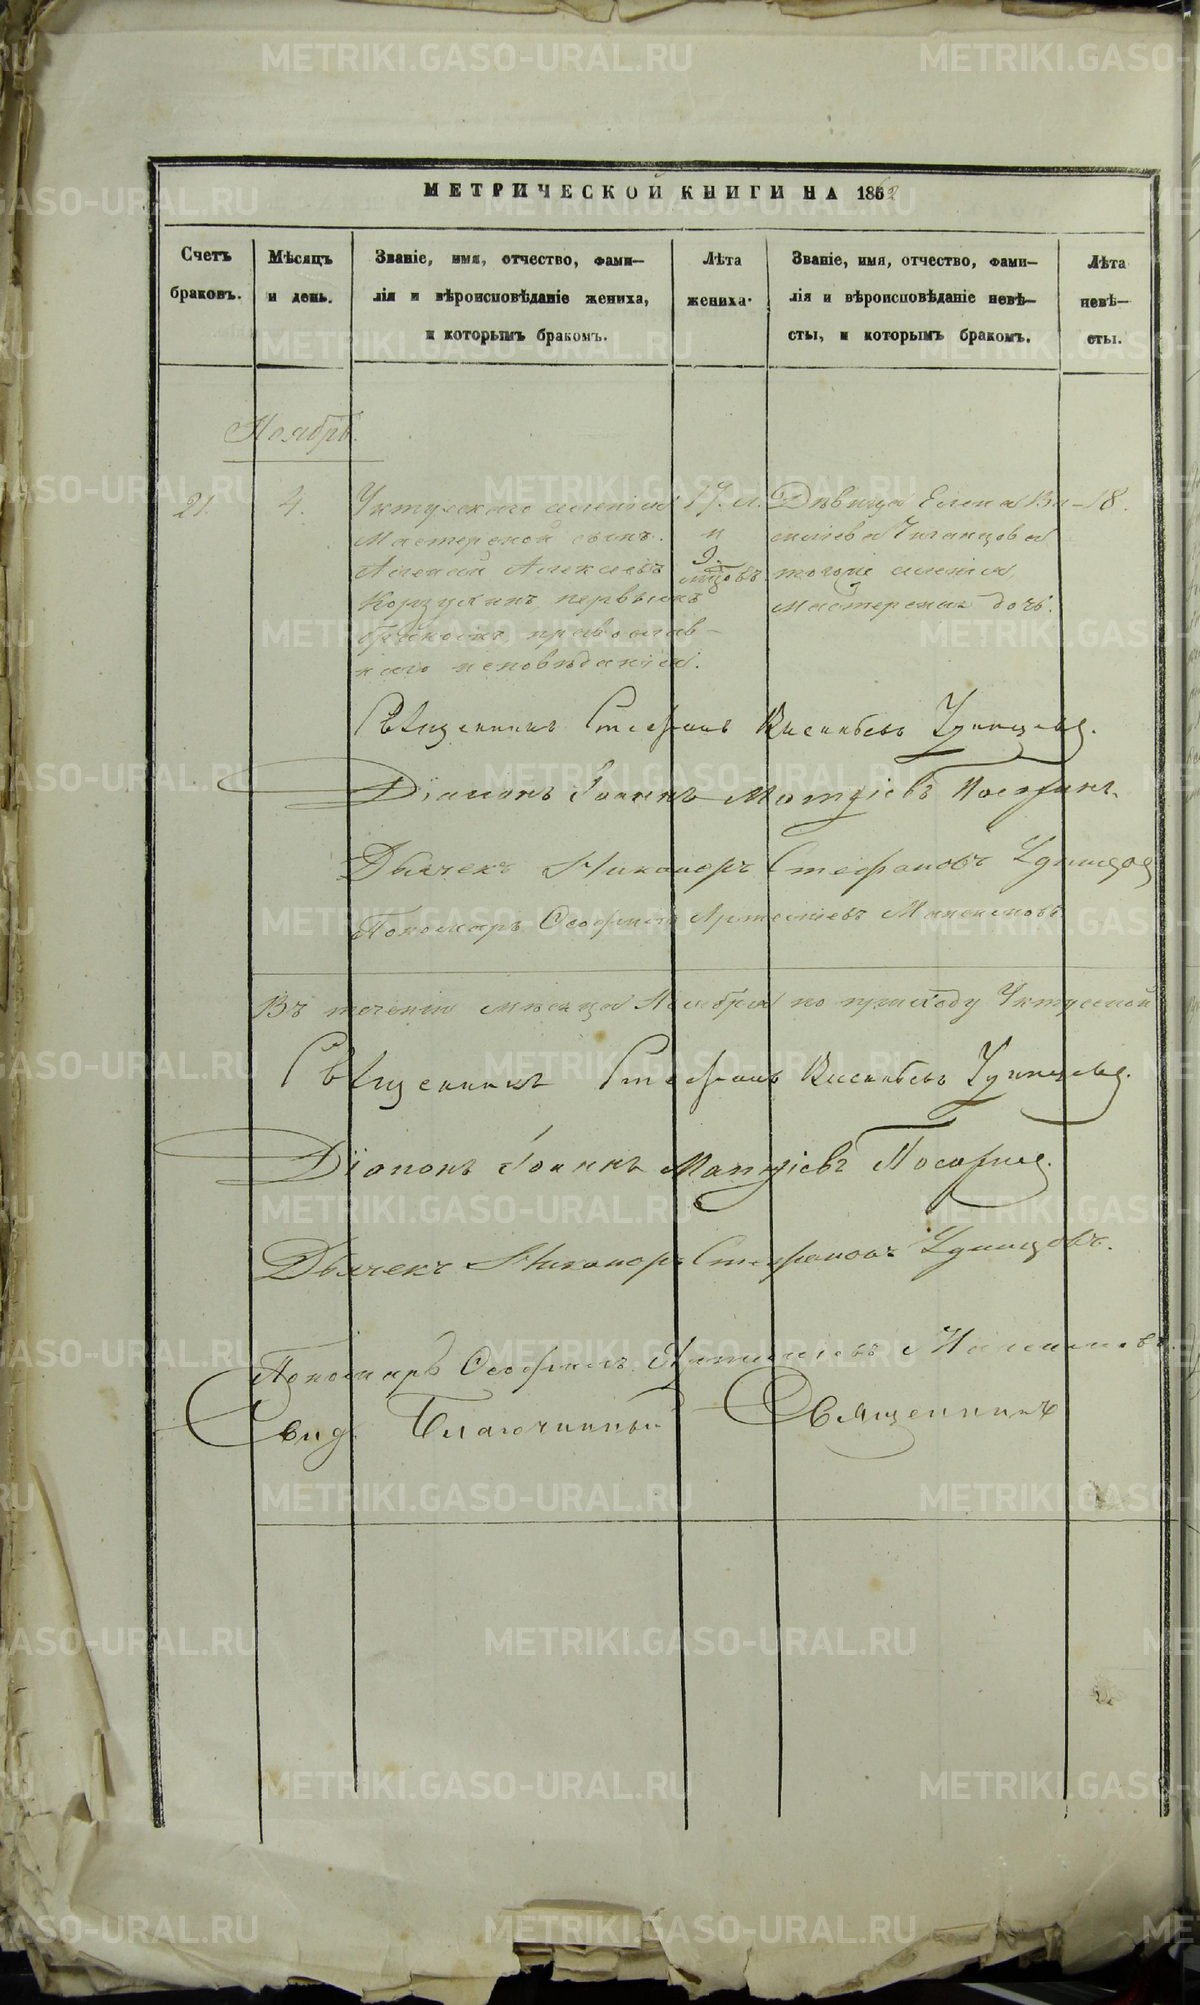 МЕТРИЧЕСКОЙ КНИГИ НА 1862
Счетъ браковъ.
Мѣсяцъ и день.
Званіе, имя, отчество, фами—
лія и вѣроисповѣданіе жениха,
и которымъ бракомъ.
Лѣта жениха.
Званіе, имя, отчество, фами—
лія и вѣроисповѣданіе невѣ—
сты, и которымъ бракомъ.
Лѣта невѣ—
сты.
Ноябрь.
21.
4.
Уктусского селенія
Мастерской сынъ
Алексѣй Алексѣевъ
первымъ
бракомъ православ-
наго исповѣданія.
17. л.
и
9.
мцовъ
Дѣвица Елена Ва-
сильева
тогоже селенія,
Мастерская дочь.
18.
Священникъ Стефанъ Удинцевъ.
Діаконъ Іоаннъ Матѳіевъ
Дьячекъ Никаноръ Стефановъ Удинцов
Пономарь Ѳеофилъ Артеміевъ Максимовъ
Въ теченіи мѣсяца Ноября по приходу Уктусской
Священникъ Стефанъ Удинцевъ.
Діаконъ Іоаннъ Матѳіевъ
Дьячекъ Никаноръ Стефановъ Удинцовъ.
Пономарь Ѳеофилъ Артеміевъ Максимовъ
Свид. Благочинный Священникъ
METRIKI.GASO-URAL.RU